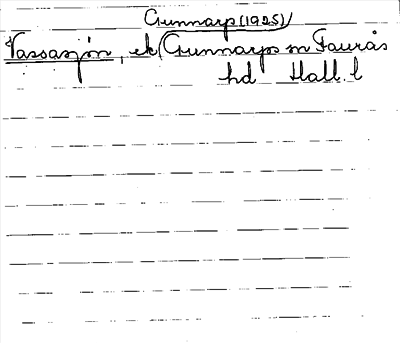 Gunnarp (1925)/
Vassasjön, ek (Gunnarps sn Faurås
hd Hall. l